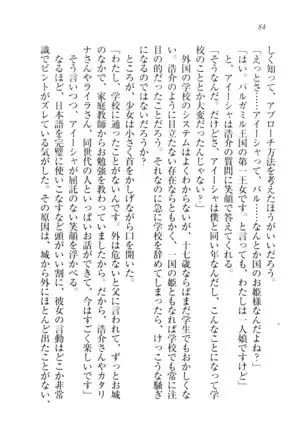 84
しく知って、アプローチ方法を考えたほうがいいだろう。
「えっとさ……アイーシャって、パル……なんとか国のお姫様なんだよね?」
「はい。パルガミル王国の第一王女です。と言っても、わたしは一人娘ですけど」
なるべくさりげなく、アイーシャは浩介の質問に笑顔で答えてくれる。
「そうなんだ。だけどさ、アイーシャは僕と同い年なんだし、こんなことになって学
校のことか大変だったんじゃない?」
外国の学校のシステムはよくわからないが、十七歳ならばまだ学生でもおかしく
ないだろう。浩介のように目立たない存在ならともかく、一国の姫ともなれば学校でも常に注
目の的だったことだろう。それなのに急に学校を辞めてしまったら、けっこうな騒ぎ
になったのではないだろうか?
ところが、少女は小さく首をかしげながら口を開いた。
「わたし、学校に通ったことがないんです。外は危ないと父に言われて、ずっとお城
のなかで、家庭教師からお勉強を教わっていましたから。だから、浩介さんやカタリ
ナさんやライラさん、同世代の人といっぱいお話ができて、今はすごく楽しいです」
そう言いつつ、アイーシャが屈託のない笑顔を浮かべる。
なるほど、日本語を完璧に使いこなすなど頭がいい割に、彼女の言動はどこか非常
識でピントがズレている気がした。その原因は、城から外にほとんど出たことがない、